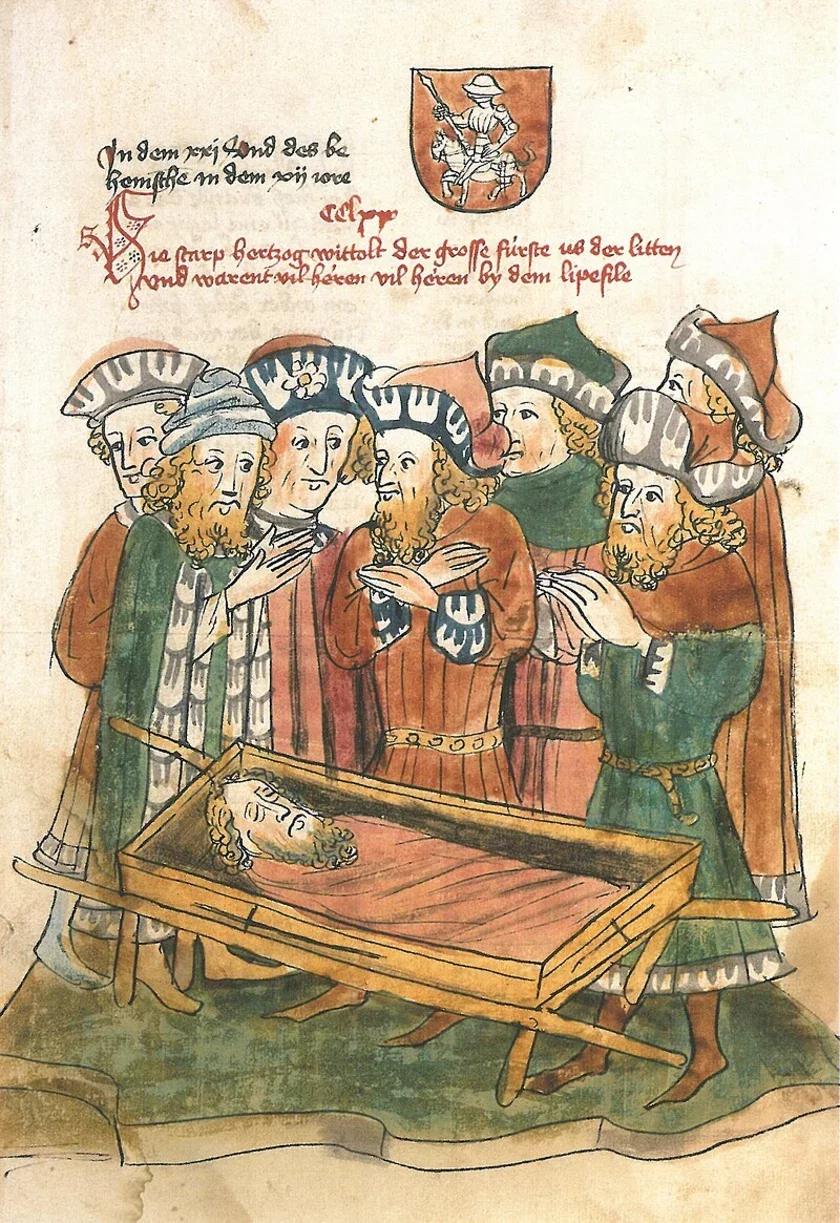 In dem xxj Vnd des be
hemsche in dem xij iore
CClxx
Hie starp hertzog wittolt der grosse fúrste us der litten
Vnd warent vil heren vil heren by dem lipefile